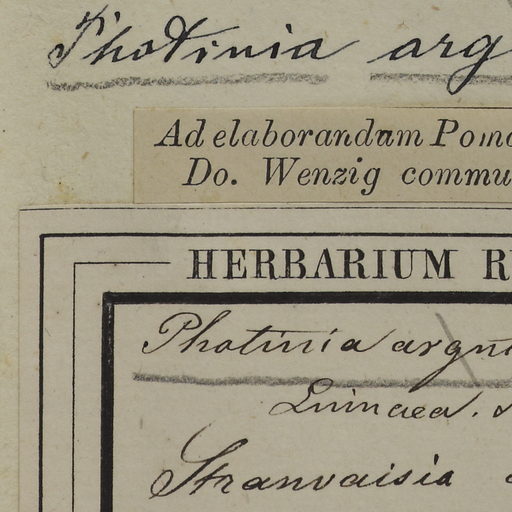 Photinia arg
Ad elaborandam Pom
Do. Wenzig commu
HERBARIUM R
Photinia argu
Linnaea.
Stranvaisia